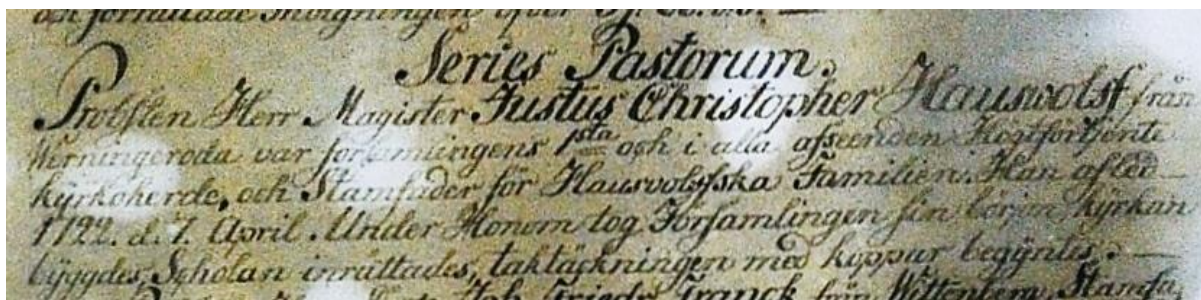 och förrättade Invigningen efter
Series Pastorum.
Probsten Herr Magister Justus Christopher Hauswolff från
Werningeroda var församlingens 1sta och i alla afseenden Högtförtjente
kyrkoherde, och Stamfader för Hauswolffska Familien. Han afled
1722. d. 7. April. Under Honom tog Församlingen sin början, kyrkan
byggdes, Scholan inrättades, taktäckningen med koppar begyntes. —
Joh. Friedr. Franck från Wittenberg, Stamfa